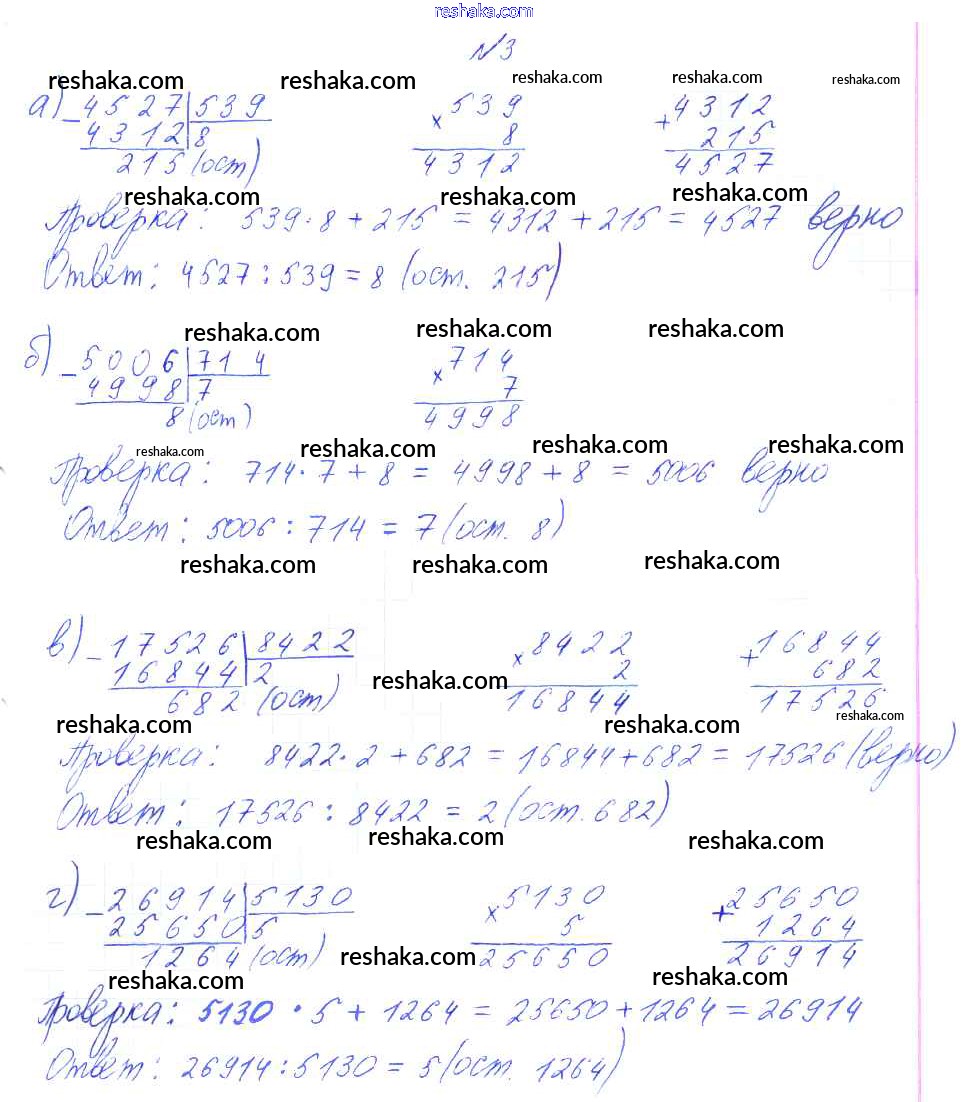 reshaka.com
№3
reshaka.com reshaka.com reshaka.com reshaka.com reshaka.com
а) 4527 | 539 × 539 + 4312
− 4312 | 8 8 215
215 (ост) 4312 4527
reshaka.com reshaka.com reshaka.com
Проверка: 539 · 8 + 215 = 4312 + 215 = 4527 верно
Ответ: 4527 : 539 = 8 (ост. 215)
reshaka.com reshaka.com reshaka.com
б) − 5006 | 714 × 714
4998 | 7 7
8 (ост) 4998
reshaka.com reshaka.com reshaka.com reshaka.com
Проверка: 714 · 7 + 8 = 4998 + 8 = 5006 верно
Ответ: 5006 : 714 = 7 (ост. 8)
reshaka.com reshaka.com reshaka.com
в) − 17526 | 8422 × 8422 + 16844
16844 | 2 2 682
682 (ост) 16844 17526
reshaka.com
reshaka.com reshaka.com reshaka.com
Проверка: 8422 · 2 + 682 = 16844 + 682 = 17526 (верно)
Ответ: 17526 : 8422 = 2 (ост. 682)
reshaka.com reshaka.com reshaka.com
г) − 26914 | 5130 × 5130 + 25650
25650 | 5 5 1264
1264 (ост) 25650 26914
reshaka.com reshaka.com reshaka.com
Проверка: 5130 · 5 + 1264 = 25650 + 1264 = 26914
Ответ: 26914 : 5130 = 5 (ост. 1264)